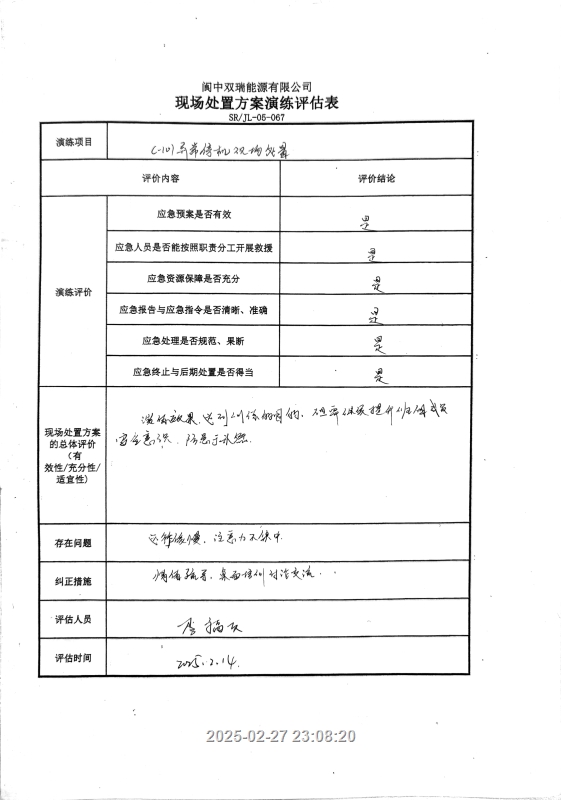 阆中双瑞能源有限公司
现场处置方案演练评估表
SR/JL-05-067
演练项目
C-101异常停机现场处置
评价内容 评价结论
演练评价
应急预案是否有效 是
应急人员是否能按照职责分工开展救援 是
应急资源保障是否充分 是
应急报告与应急指令是否清晰、准确 是
应急处理是否规范、果断 是
应急终止与后期处置是否得当 是
现场处置方案
的总体评价
（有
效性/充分性/
适宜性）
演练效果达到训练的目的，继续提升班组成员
安全意识，防患于未然
存在问题
缓慢、注意力不集中
纠正措施
桌面培训讨论交流
评估人员
评估时间
2025.2.14.
2025-02-27 23:08:20